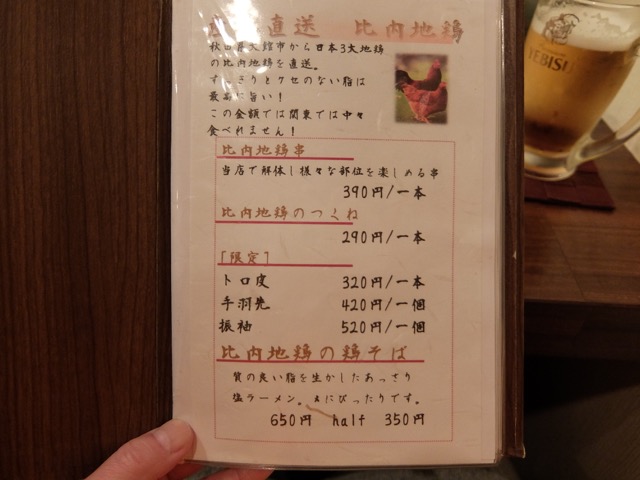 直送 比内地鶏
秋田県大館市から日本3大地鶏
の比内地鶏を直送。
すっきりとクセのない脂は
最高に旨い！
この金額では関東では中々
食べれません！
比内地鶏串
当店で解体し様々な部位を楽しめる串
390円/一本
比内地鶏のつくね
290円/一本
[限定]
トロ皮 320円/一本
手羽先 420円/一個
振袖 520円/一個
比内地鶏の鶏そば
質の良い脂を生かしたあっさり
塩ラーメン。〆にぴったりです。
650円 half 350円
YEBISU